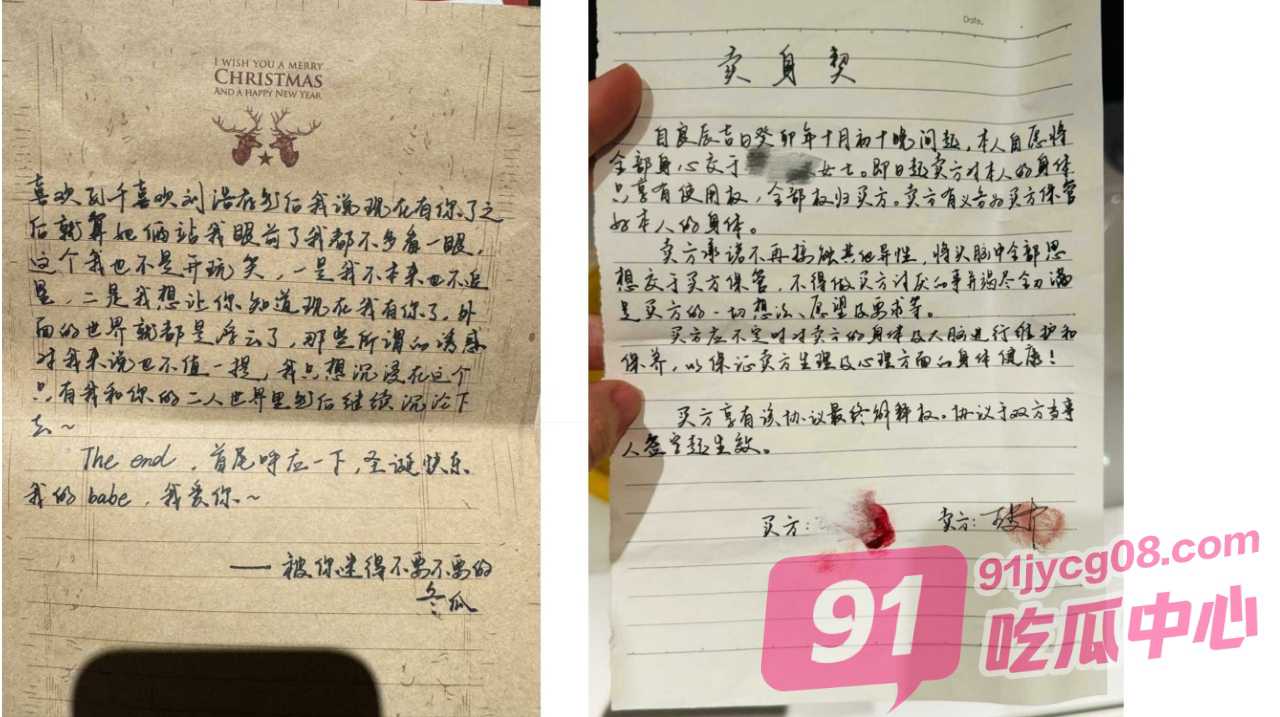 I WISH YOU A MERRY
CHRISTMAS
AND A HAPPY NEW YEAR
喜欢到千喜欢刘浩存到后我说现在有你了之
后就算她俩站我眼前了我都不多看一眼，
这个我也不是开玩笑，一是我不本来也不追
星，二是我想让你知道现在我有你了，外
面的世界就都是浮云了，那些所谓的诱惑
对我来说也不值一提，我只想沉浸在这个
只有我和你的二人世界里然后继续沉沦下
去～
The end，首尾呼应一下，圣诞快乐
我的babe，我爱你～
——被你迷得不要不要的
冬瓜
Date.
卖身契
自良辰吉日癸卯年十月初十晚间起，本人自愿将
全部身心交于 女士。即日起卖方对本人的身体
只享有使用权，全部权归买方。卖方有义务为买方保管
好本人的身体。
卖方承诺不再接触其他异性，将头脑中全部思
想交于买方保管，不得做买方讨厌的事并竭尽全力满
足买方的一切想法、愿望及要求等。
买方应不定时对卖方的身体及大脑进行维护和
保养，以保证卖方生理及心理方面的身体健康！
买方享有该协议最终解释权。协议于双方当事
人签字起生效。
买方：
卖方：
91
91jycg08.com
吃瓜中心